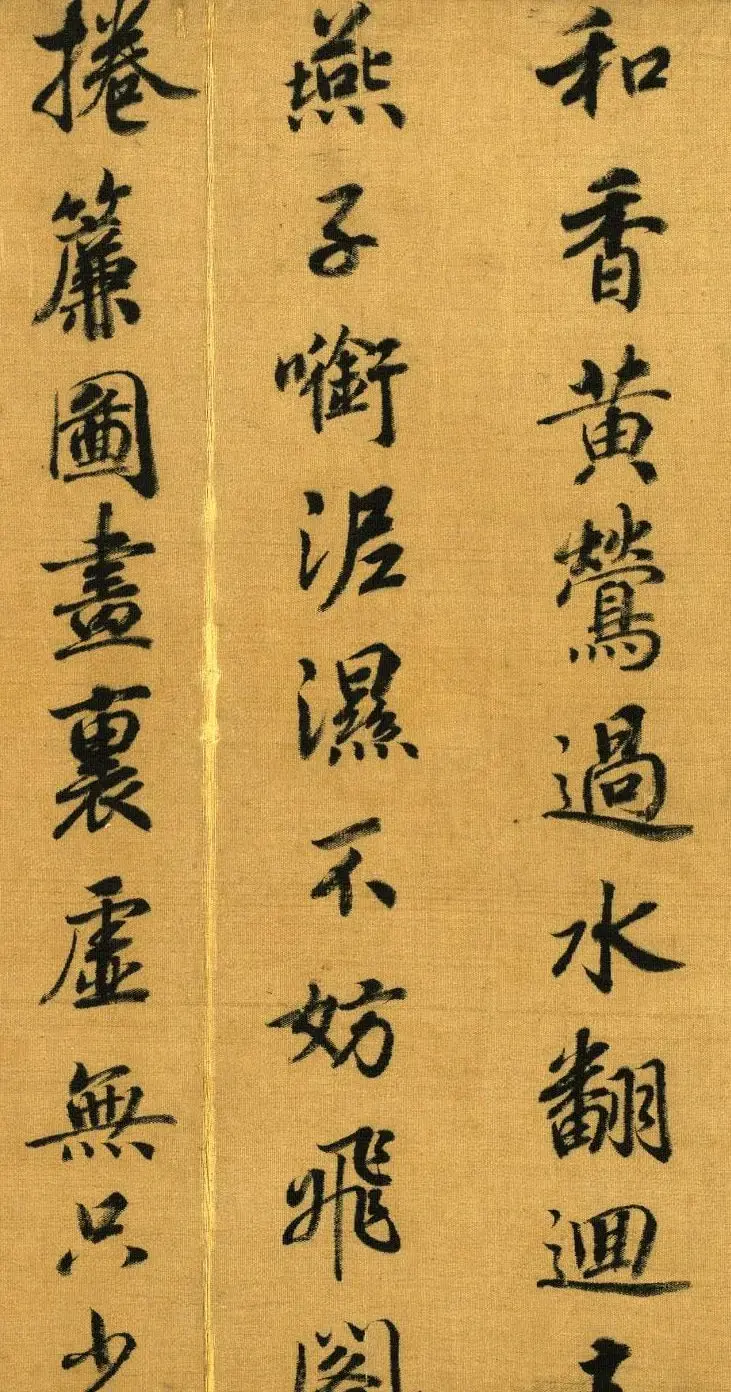 和香黄鶯過水翻迴
燕子㘅泥濕不妨飛閣
捲簾圖畫裏虛無只少